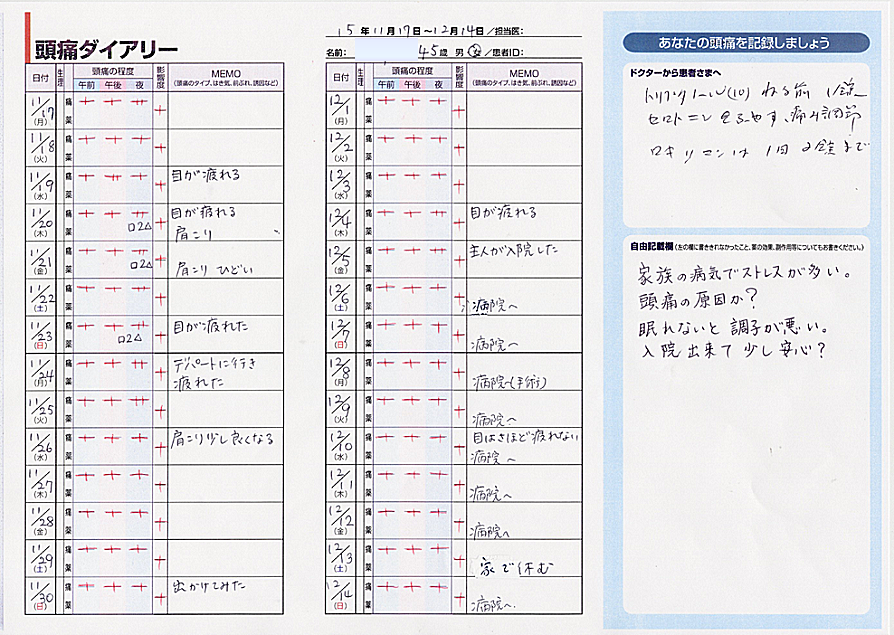 頭痛ダイアリー
15年11月17日～12月14日/担当医:
名前: 45歳 男・女/患者ID:
日付 生理 頭痛の程度 影響度 MEMO
午前 午後 夜 (頭痛のタイプ、はき気、前ぶれ、誘因など)
11/17 (月) 痛 + + + +
薬
11/18 (火) 痛 + + + +
薬
11/19 (水) 痛 + + + 目が疲れる
薬
11/20 (木) 痛 + + 目が疲れる
薬 ロ2△ 肩こり
11/21 (金) 痛 + +
薬 ロ2△ 肩こりひどい
11/22 (土) 痛 + +
薬
11/23 (日) 痛 + + 目が疲れた
薬 ロ2△
11/24 (月) 痛 + + デパートに行き
薬 疲れた
11/25 (火) 痛 + +
薬
11/26 (水) 痛 + + + 肩こり少し良くなる
薬
11/27 (木) 痛 + + + +
薬
11/28 (金) 痛 + + + +
薬
11/29 (土) 痛 + + + +
薬
11/30 (日) 痛 + + + + 出かけてみた
薬
日付 生理 頭痛の程度 影響度 MEMO
午前 午後 夜 (頭痛のタイプ、はき気、前ぶれ、誘因など)
12/1 (月) 痛 + + + +
薬
12/2 (火) 痛 + + + +
薬
12/3 (水) 痛 + + + +
薬
12/4 (木) 痛 + + + + 目が疲れる
薬
12/5 (金) 痛 + + + + 主人が入院した
薬
12/6 (土) 痛 + + + +
薬 病院へ
12/7 (日) 痛 + + + +
薬 病院へ
12/8 (月) 痛 + + + +
薬 病院へ(手術)
12/9 (火) 痛 + + + +
薬 病院へ
12/10 (水) 痛 + + + + 目はさほど疲れない
薬 病院へ
12/11 (木) 痛 + + + +
薬 病院へ
12/12 (金) 痛 + + + +
薬 病院へ
12/13 (土) 痛 + + + +
薬 家で休む
12/14 (日) 痛 + + + +
薬 病院へ
あなたの頭痛を記録しましょう
ドクターから患者さまへ
トリプタノール(10) ねる前 1錠
セロトニンをふやす、痛み調節
ロキソニンは1日2錠まで
自由記載欄(左の欄に書ききれなかったこと、薬の効果、副作用等についてもお書きください。)
家族の病気でストレスが多い。
頭痛の原因か?
眠れないと調子が悪い。
入院出来て少し安心?